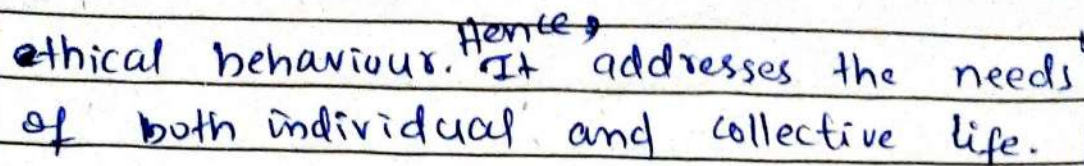 ethical behaviour. Hence, It addresses the needs
of both individual and collective life.